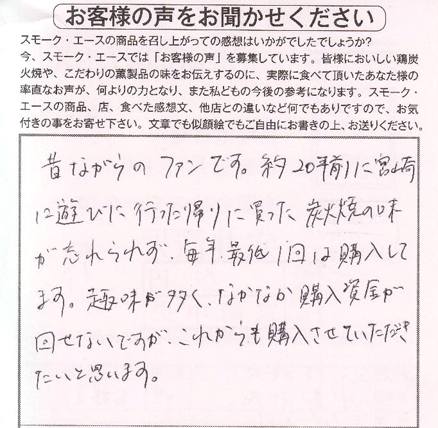 お客様の声をお聞かせください
スモーク・エースの商品を召し上がっての感想はいかがでしたでしょうか?
今、スモーク・エースでは「お客様の声」を募集しています。皆様においしい鶏炭
火焼や、こだわりの薫製品の味をお伝えするのに、実際に食べて頂いたあなた様の
率直なお声が、何よりの力となり、また私どもの今後の参考になります。スモーク・
エースの商品、店、食べた感想文、他店との違いなど何でもありですので、お気
付きの事をお寄せ下さい。文章でも似顔絵でもご自由にお書きの上、お送りください。
昔ながらのファンです。約20年前に宮崎
に遊びに行った帰りに買った炭火焼の味
が忘れられず、毎年、最低1回は購入して
ます。趣味が多く、なかなか購入資金が
回せないですが、これからも購入させていただき
たいと思います。